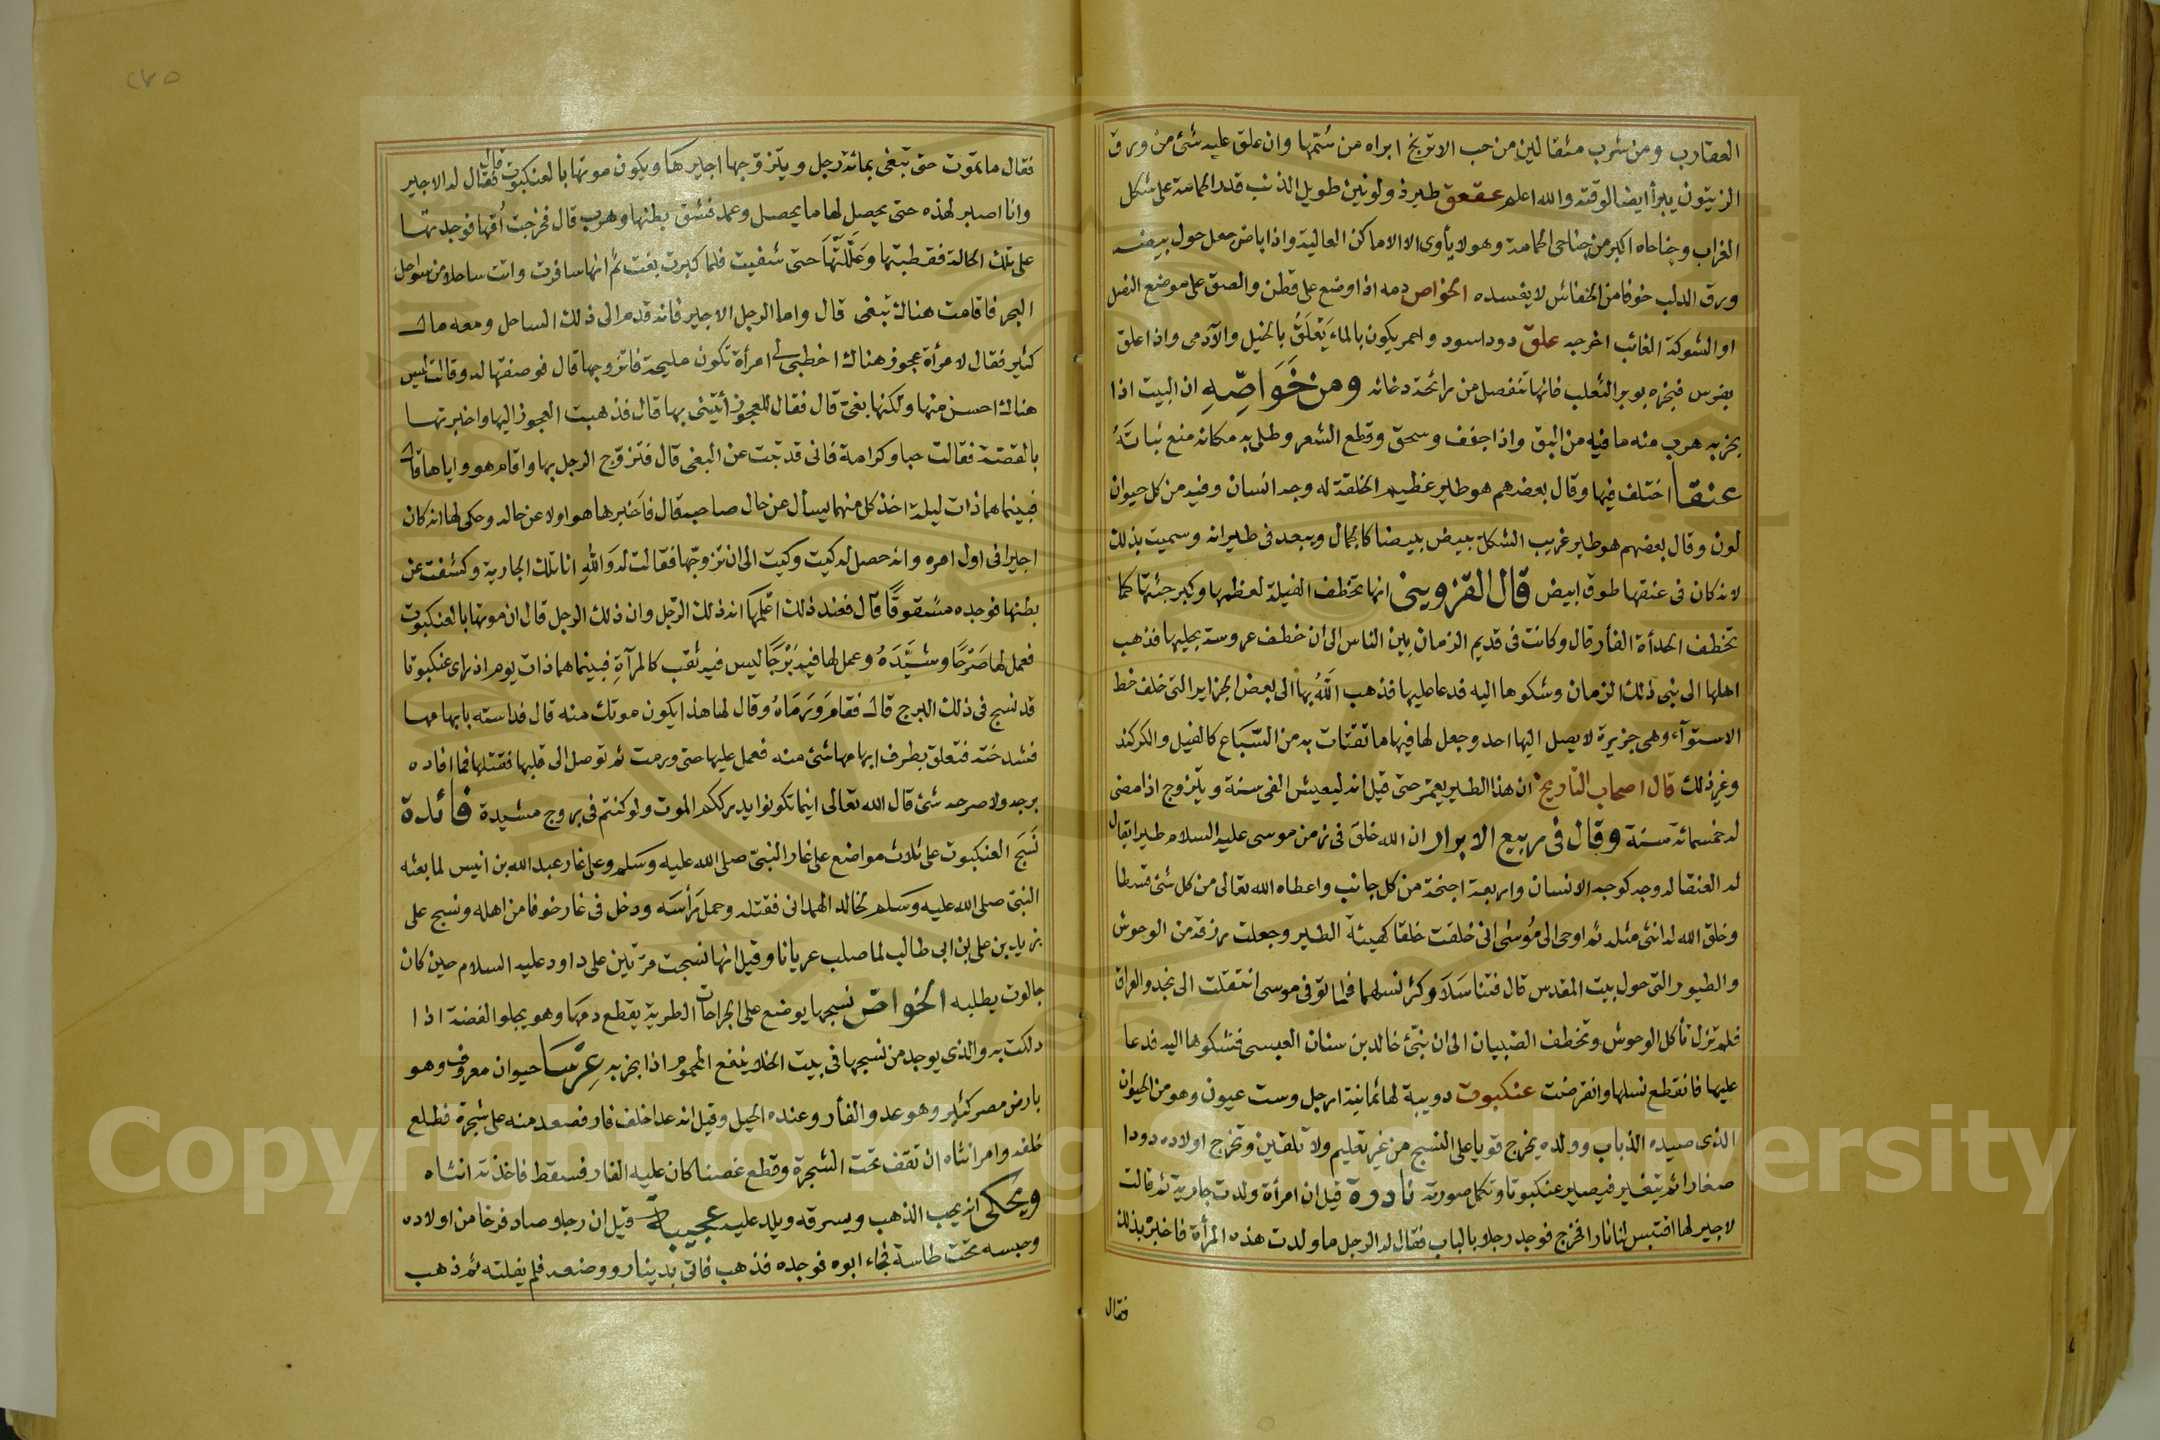 العقارب ومن شرب مثقالين من حب الاترنج ابراه من سُمّها وان علق عليه شئ من ورق
الزيتون يبرأ ايضا لوقته والله اعلم عقعق طير ذو لونين طويل الذنب قدر الحمامة على شكل
الغراب وجناحاه اكبر من جناحى الحمامة وهو لا يأوى الا الاماكن العالية واذا باض جعل حول بيضه
ورق الدلب خوفا من الخفاش لا يفسده الخواص دمه اذا وضع على قطن والصق على موضع النصل
او الشوكة الغائب اخرجه علق دود اسود واحمر يكون بالماء يَعْلَقُ بالخيل والآدمى واذا علق
بفرس فبخره بوبر الثعلب فانها تنفصل من رائحة دخانه ومن خَوَاصِّهِ ان البيت اذا
بخر به هرب منه ما فيه من البق واذا جفف وسحق وقطع الشعر وطلى به مكانه منع نباتَهُ
عنقا اختلف فيها وقال بعضهم هو طاير عظيم الخلقة له وجه انسان وفيه من كل حيوان
لون وقال بعضهم هو طير غريب الشكل يبيض بيضا كالجمال ويبعد فى طيرانه وسميت بذلك
لانه كان فى عنقها طوق ابيض قال القزوينى انها تخطف الفيلة لعظمها وكبر جثتها كما
تخطف الحدأة الفأر قال وكانت فى قديم الزمان بين الناس الى ان خطف عروسة بحليها فذهب
اهلها الى نبى ذلك الزمان وشكوها اليه فدعا عليها فذهب اللّٰهُ بها الى بعض الجزاير التى خلف خط
الاستوآء وهى جزيرة لا يصل اليها احد وجعل لها فيها ما تقتات به من السّباع كالفيل والكركند
وغير ذلك قال اصحاب التاريخ ان هذا الطير يعمّر حتى قيل انه ليعيش الفى سنة ويتزوج اذا مضى
له خمسمائة سنة وقال فى ربيع الابرار ان الله خلق فى زمن موسى عليه السلام طيرا يقال
له العنقا له وجه كوجه الانسان واربعة اجنحة من كل جانب واعطاه الله تعالى من كل شئ قسطا
وخلق الله له انثى مثله ثم اوحى الى مُوسٰى انى خلقت خلقا كهيئة الطير وجعلت رزقه من الوحوش
والطيور التى حول بيت المقدس قال فتناسَلاَ وكثر نسلهما فلما توفى موسى انتقلت الى نجد والعراق
فلم تزل تأكل الوحوش وتخطف الصبيان الى ان نبّئ خالد بن سنان العبسى فشكوها اليه فدعا
عليها فانقطع نسلها وانقرضت عنكبوت دويبة لها ثمانية ارجل وست عيون وهو من الحيوان
الذى صيده الذباب وولده يخرج قويا على النسج من غير تعليم ولا تلقين وتخرج اولاده دودا
صغارا ثم يتغير فيصير عنكبوتا وتكمل صورته نادرة قيل ان امرأة ولدت جارية ثم قالت
لاجير لها اقتبس لنا نارا فخرج فوجد رجلا بالباب فقال له الرجل ما ولدت هذه المرأة فاخبره بذلك
فقال
فقال ما تموت حتى تبغى بمائة رجل ويتزوجها اجيرها ويكون موتها بالعنكبوت قال فقال له الاجير
وانا اصبر لهذه حتى يحصل لها ما يحصل وعمد فشق بطنها وهرب قال فخرجت اُمّها فوجدتها
على تلك الحالة فقطبتها وعَلَّلَتْهَا حتى شفيت فلما كبرت بغت ثم انها سافرت واتت ساحلا من سواحل
البحر فاقامت هناك تبغى قال واما الرجل الاجير فانه قدم الى ذلك الساحل ومعه مال
كثير فقال لامرأة عجوز هناك اخطبى لى امرأة تكون مليحة فاتزوجها قال فوصفتها له وقالت ليس
هناك احسن منها ولكنها بغىّ قال فقال للعجوز أتينى بها قال فذهبت العجوز اليها واخبرتها
بالقصّة فقالت حبا وكرامة فانى قد تبت عن البغى قال فتزوّج الرجل بها واقام هو واياها قال
فبينما هما ذات ليلة اخذ كل منهما يسأل عن حال صاحبه قال فاَخبرها هو اولا عن حاله وحكى لها انه كان
اجيرا فى اول امره وانه حصل له كيت وكيت الى ان تزوجها فقالت له وَاللهِ انا تلك الجارية وكشفت عن
بطنها فوجده مشقوقًا قال فعند ذلك اعلمها انه ذلك الرّجل وان ذلك الرجل قال ان موتها بالعنكبوت
فعمل لها صَرْحًا وشَيَّدَهُ وعمل لها فيه بُرْجًا ليس فيه ثقب كالمرآةِ فبينما هما ذات يوم اذ راى عنكبوتا
قد نسج فى ذلك البرج قال فقامَ وَرَمَاهُ وقال لها هذا يكون موتك منه قال فداسته بابهامها
فشدخته فتعلق بطرف ابهامها شئ منه فعمل عليها حتى ورمت ثم توصل الى قلبها فقتلها فما افاده
برجه ولا صرحه شئ قال الله تعالى اينما تكونوا يدرككم الموت ولو كنتم فى بروج مشيدة فائدة
نَسَجَ العنكبوت على ثلاث مواضع على غار النبىّ صلى الله عليه وسَلم وعلى غار عبد الله بن انيس لما بعثه
النبىّ صلى الله عليه وسلم لخالد الهمدانى فقتله وحمل رَأسَه ودخل فى غار خوفا من اهله ونسج على
زيد بن على بن ابى طالب لما صلب عريانا وقيل انها نسجت مرّتين على داود عليه السلام حين كان
جالوت يطلبه الخواص نسجها يوضع على الجراحات الطرية يقطع دمها وهو يجلو الفضة اذا
دلكت به والذى يوجد من نسجها فى بيت الخلا ينفع المحموم اذا بخر به عِرْسَا حيوان معروف وهو
بارض مصر كثير وهو عدو الفأر وعنده الحيل وقيل انه عدا خلف فار فصعد منه على شجرة فطلع
خلفه وامر انثاه ان تقف تحت الشجرة وقطع غصنا كان عليه الفار فسقط فاخذته انثاه
ويحكى انه يحب الذهب ويسرقه ويلد عليه عجيبة قيل ان رجلا صاد فرخا من اولاده
وحبسه تحت طاسة فجاء ابوه فوجده فذهب فاتى بدينار ووضعه فلم يفلته ثم ذهب
Copyright © King University